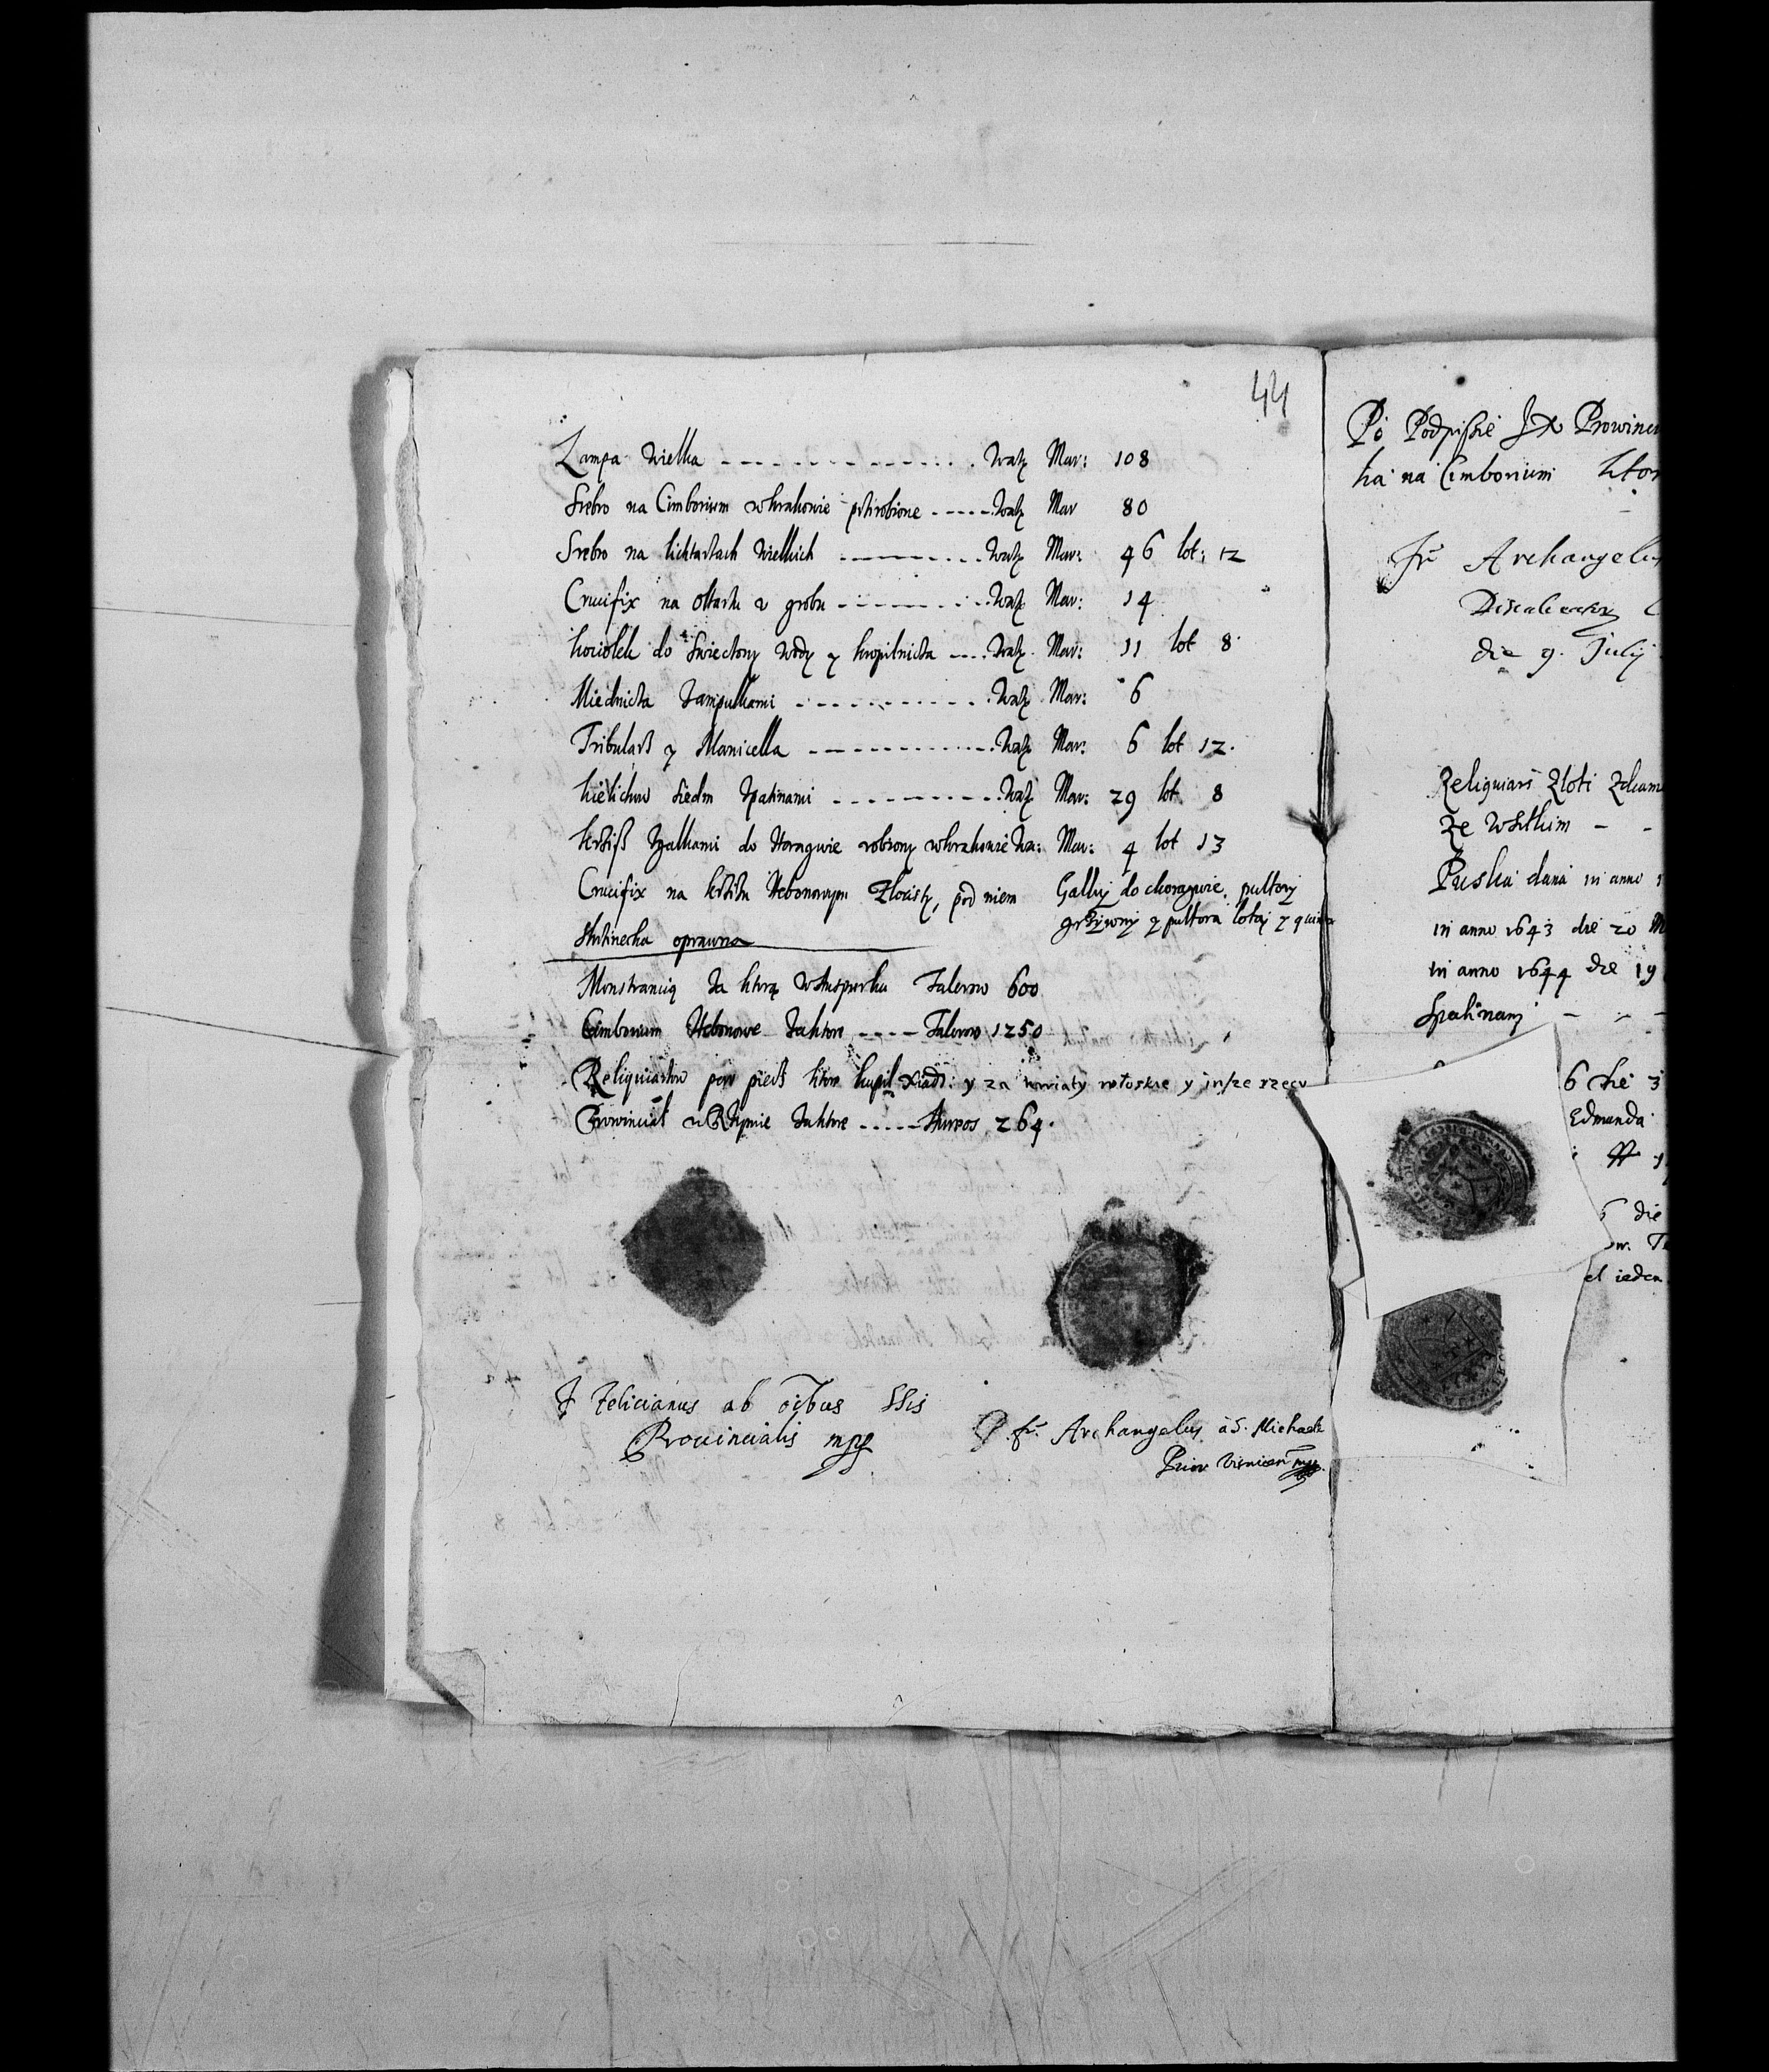 44
Lampa Wielka - - - - - - - - Waży Mar: 108
Srebro na Cimborium w krakowie przerobione - - - - - Waży Mar 80
Srebro na lichtarzach Wielkich - - - - - - Waży Mar: 46 lot: 12
Crucifix na Ołtarzu z grobu - - - - - - Waży Mar: 14
kociołek do Swięctony Wody y kropilniczka - - - - Waży Mar: 11 lot 8
Miedniczka zampułkami - - - - - - - Waży Mar: 6
Tribularz y Manicella - - - - - - - Waży Mar: 6 lot 12.
kielichow siedm zpatinami - - - - - - Waży Mar: 29 lot 8
krziż zgalkami do Horągwie robiony w krakowie Wa: Mar: 4 lot 13
Crucifix na krziżu Hebonowym Złocisty, pod niem
Gałky do choragwie, pułtory
grzywny y pułtora lota y
oprawna
Monstrancią za ktorą w Auspurku Talerow 600
Cimborium Hebonowe zaktore - - - - Talerow 1250
Reliquiarzow ktore kupił Xiądz: y za kwiaty włoskie y insze rzeczy
Prowinciał w Rzymie zaktore - - - - - Aureos 264.
F Felicianus ab oibus SSis
Prouincialis mpp
fr. Archangelus à S. Michaele
Prior Visnicen mpp.
Po Podpisie Prowinc
ka na Cimborium ktor
fr Archangelus
die 9. Julij
Reliquiarz Złoti
ze wszitkim - -
Puszka dana in anno
in anno 1643 die 20 M
in anno 1644 die 19
zpatinami - - -
6 die 3
Edmanda
die
el ieden